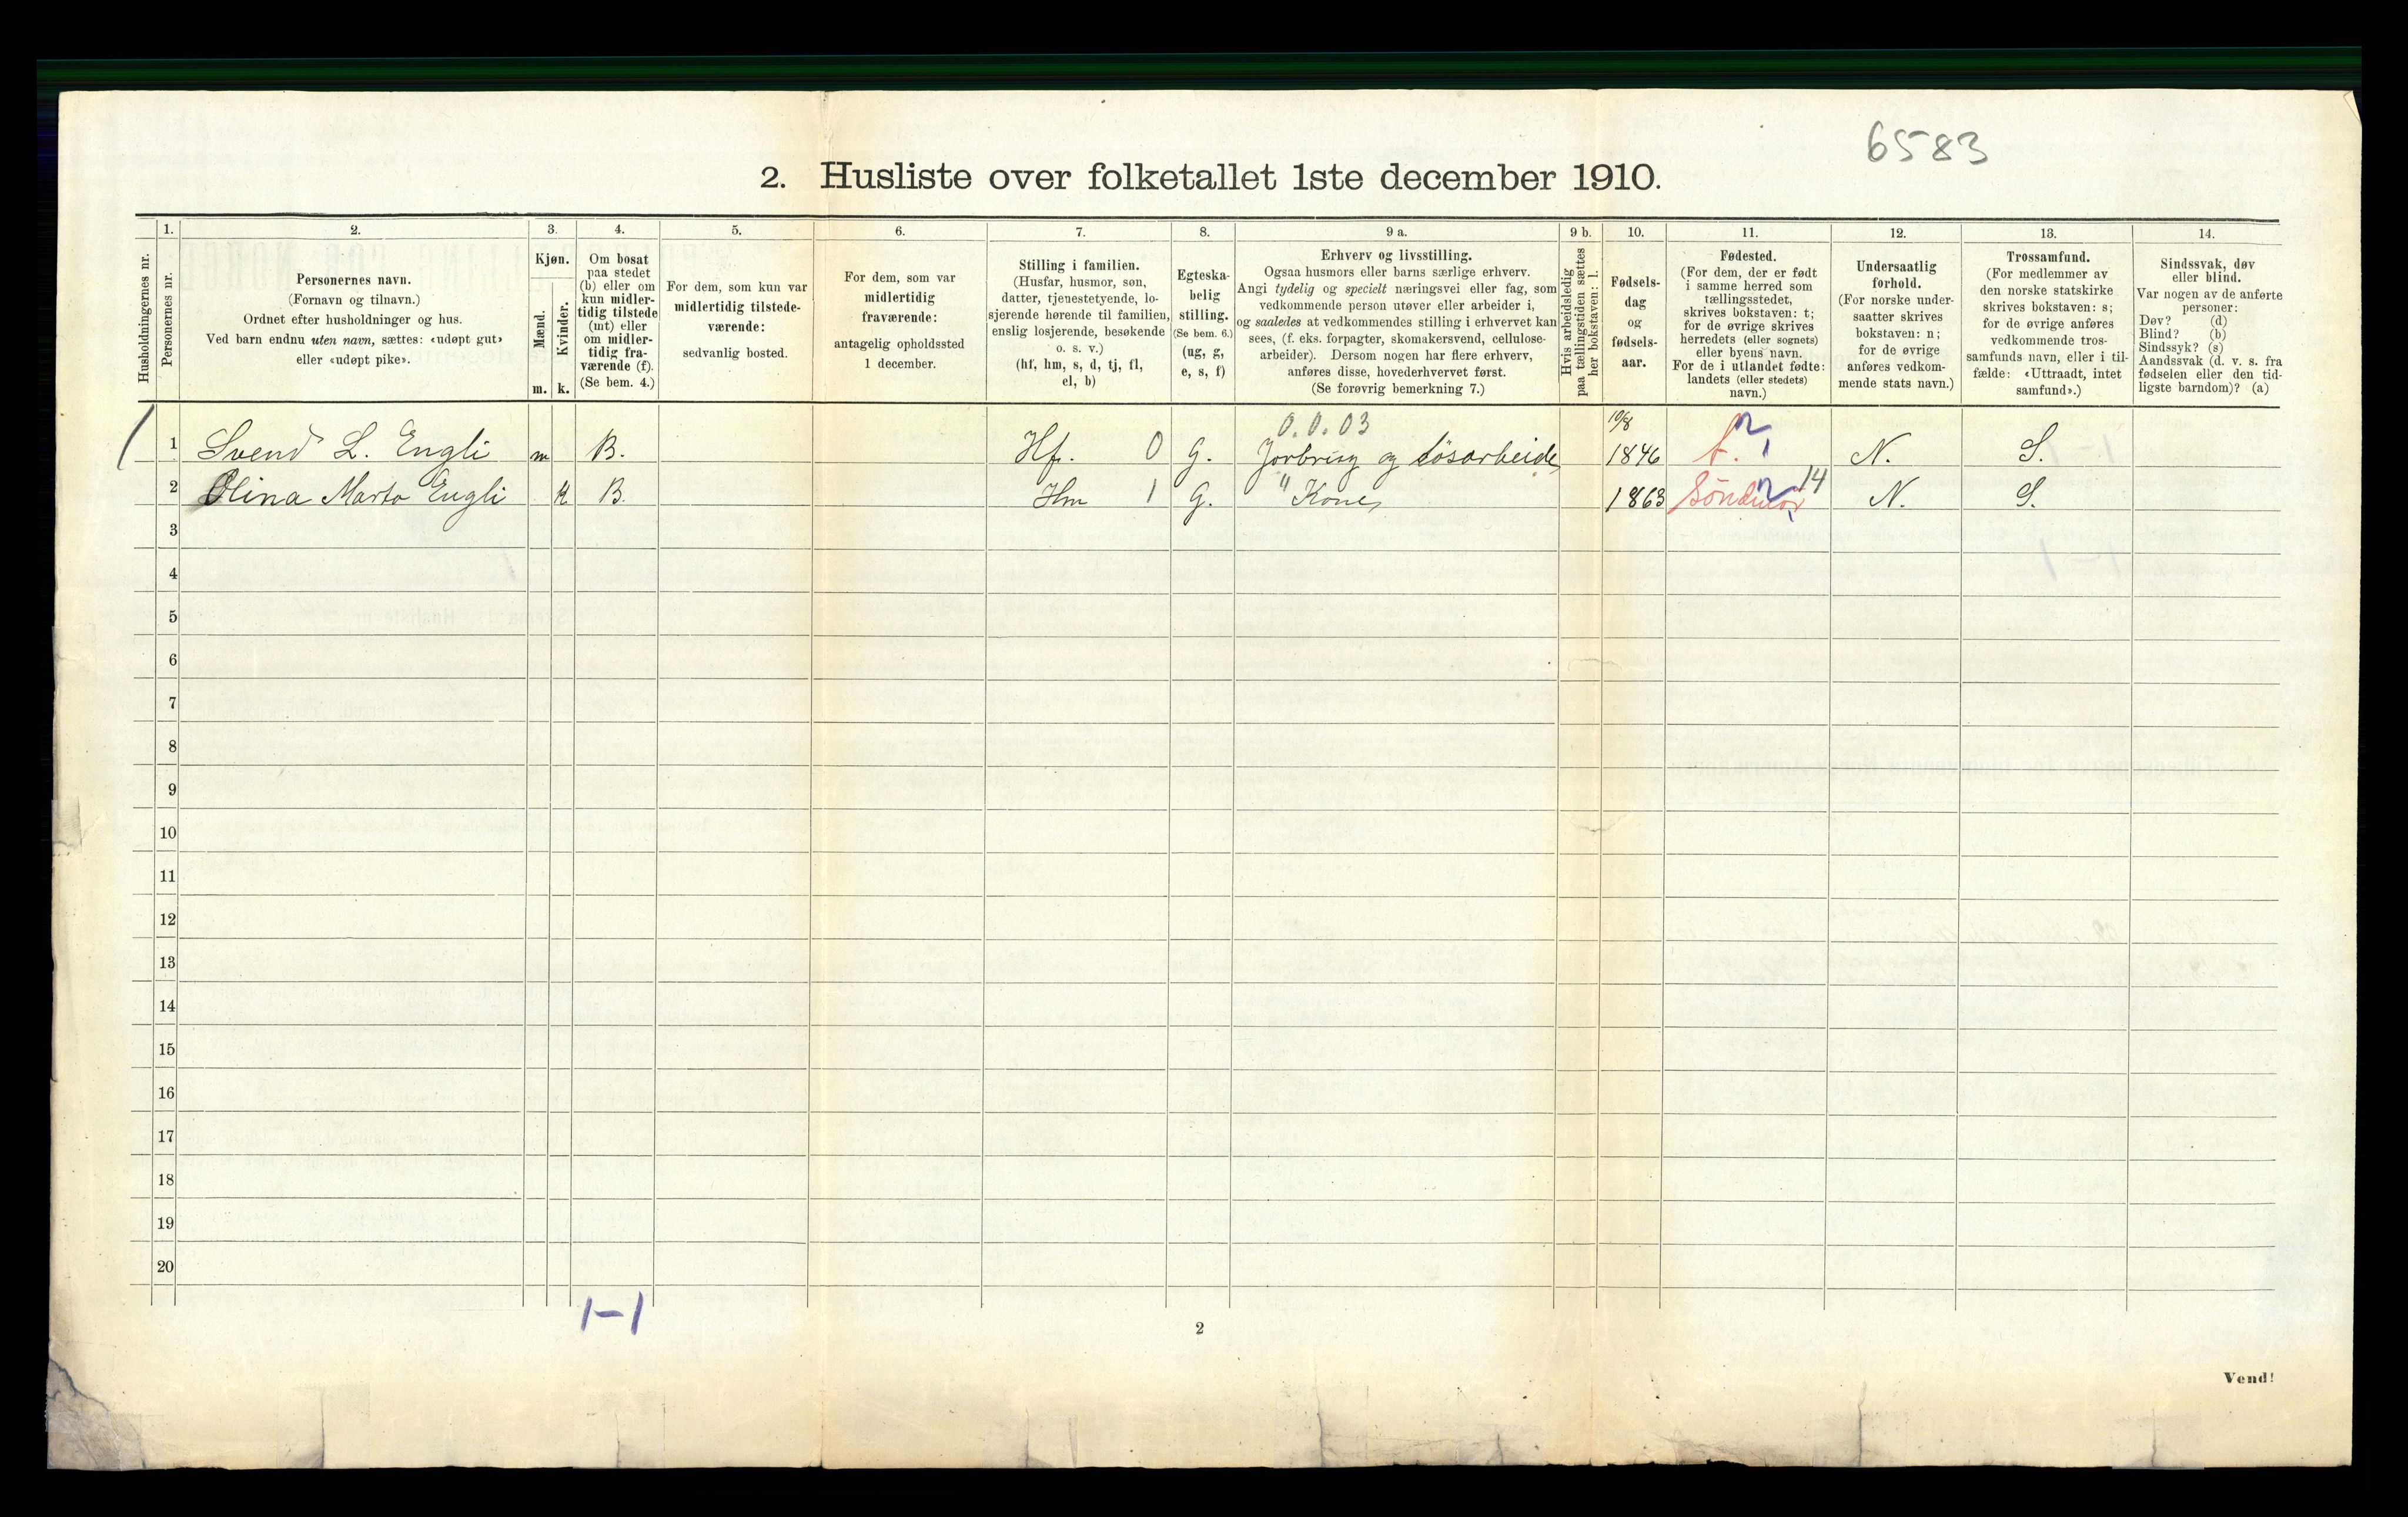 6583
2. Husliste over folketallet 1ste december 1910.
Husholdningernes nr.
1.
Personernes nr.
2.
Personernes navn.
(Fornavn og tilnavn.)
Ordnet efter husholdninger og hus.
Ved barn endnu uten navn, sættes: «udøpt gut»
eller «udøpt pike».
3.
Kjøn.
Mænd.
m.
Kvinder.
k.
4.
Om bosat
paa stedet
(b) eller om
kun midler-
tidig tilstede
(mt) eller
om midler-
tidig fra-
værende (f).
(Se bem. 4.)
5.
For dem, som kun var
midlertidig tilstede-
værende:
sedvanlig bosted.
6.
For dem, som var
midlertidig
fraværende:
antagelig opholdssted
1 december.
7.
Stilling i familien.
(Husfar, husmor, søn,
datter, tjenestetyende, lo-
sjerende hørende til familien,
enslig losjerende, besøkende
o. s. v.)
(hf, hm, s, d, tj, fl,
el, b)
8.
Egteska-
belig
stilling.
(Se bem. 6.)
(ug, g,
e, s, f)
9 a.
Erhverv og livsstilling.
Ogsaa husmors eller barns særlige erhverv.
Angi tydelig og specielt næringsvei eller fag, som
vedkommende person utøver eller arbeider i,
og saaledes at vedkommendes stilling i erhvervet kan
sees, (f. eks. forpagter, skomakersvend, cellulose-
arbeider). Dersom nogen har flere erhverv,
anføres disse, hovederhvervet først.
(Se forøvrig bemerkning 7.)
9 b.
Hvis arbeidsledig
paa tællingstiden sættes
her bokstaven: l.
10.
Fødsels-
dag
og
fødsels-
aar.
11.
Fødested.
(For dem, der er født
i samme herred som
tællingsstedet,
skrives bokstaven: t;
for de øvrige skrives
herredets (eller sognets)
eller byens navn.
For de i utlandet fødte:
landets (eller stedets)
navn.)
12.
Undersaatlig
forhold.
(For norske under-
saatter skrives
bokstaven: n;
for de øvrige
anføres vedkom-
mende stats navn.)
13.
Trossamfund.
(For medlemmer av
den norske statskirke
skrives bokstaven: s;
for de øvrige anføres
vedkommende tros-
samfunds navn, eller i til-
fælde: «Uttraadt, intet
samfund».)
14.
Sindssvak, døv
eller blind.
Var nogen av de anførte
personer:
Døv? (d)
Blind? (b)
Sindssyk? (s)
Aandssvak (d. v. s. fra
fødselen eller den tid-
ligste barndom)? (a)
0.0.03 10/8
1 Svend L. Engli m B. Hf. 0 G. Jorbrug og løsarbeide 1846 t. N. S.
2 Olina Marta Engli K B. Hm 1 G. " Kone 1863 14 N. S.
3
4
5
6
7
8
9
10
11
12
13
14
15
16
17
18
19
20
1-1
2
Vend!